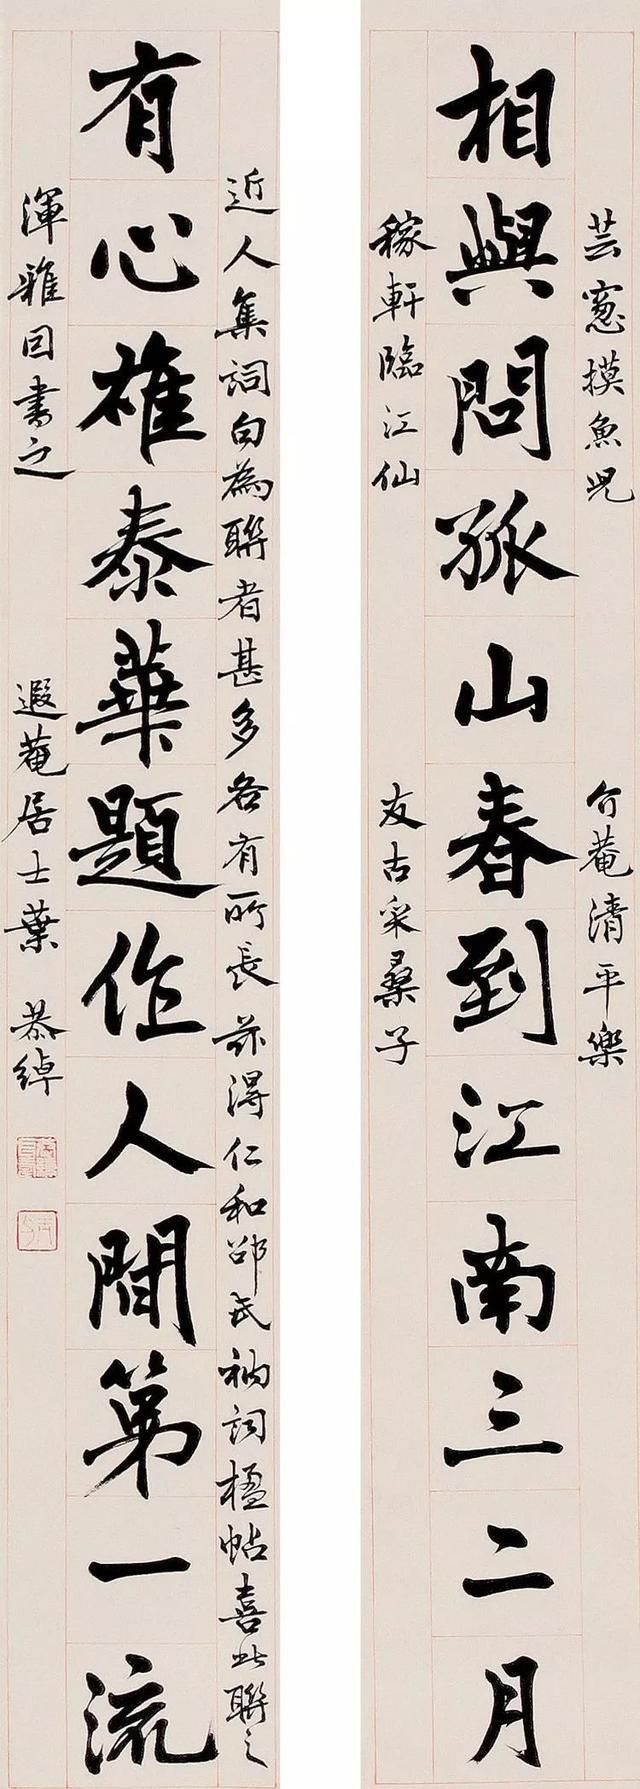 芸窻摸魚児
介菴清平樂
相與問孤山春到江南三二月
稼軒臨江仙
友古采桑子
近人集詞句為聯者甚多各有所長茲得仁和邵氏衲詞楹帖喜此聯之
有心雄泰華題作人間第一流
渾雅因書之
遐菴居士葉恭綽